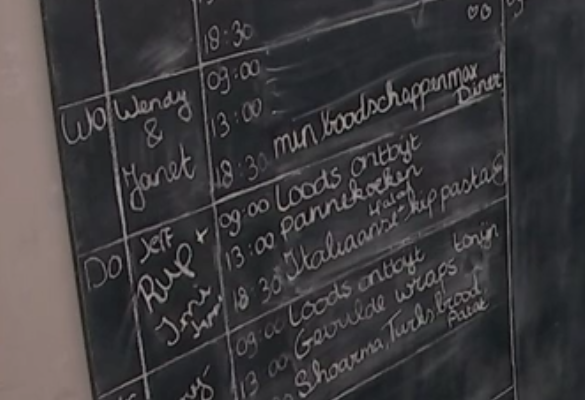 18:30
Wo Wendy & Janet
09:00
13:00
18:30 min boodschappen max Diner
Do Jeff Rup + Imi
09:00 Loods ontbijt
13:00 pannekoeken
18:30 Italiaanse kip pasta
09:00 Loods ontbijt
13:00 Gevulde wraps tonijn
Shoarma, Turks brood
Patat